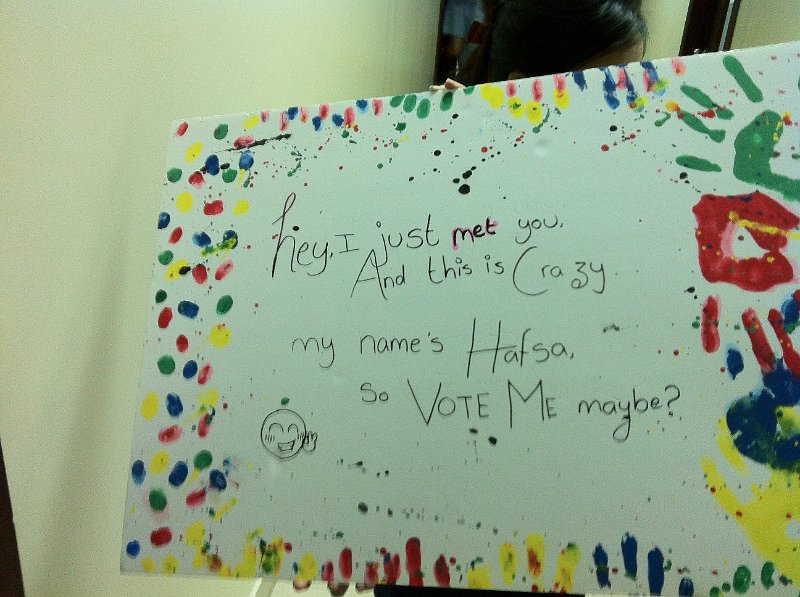 hey, I just met you.
And this is Crazy
my name's Hafsa.
So VOTE ME maybe?